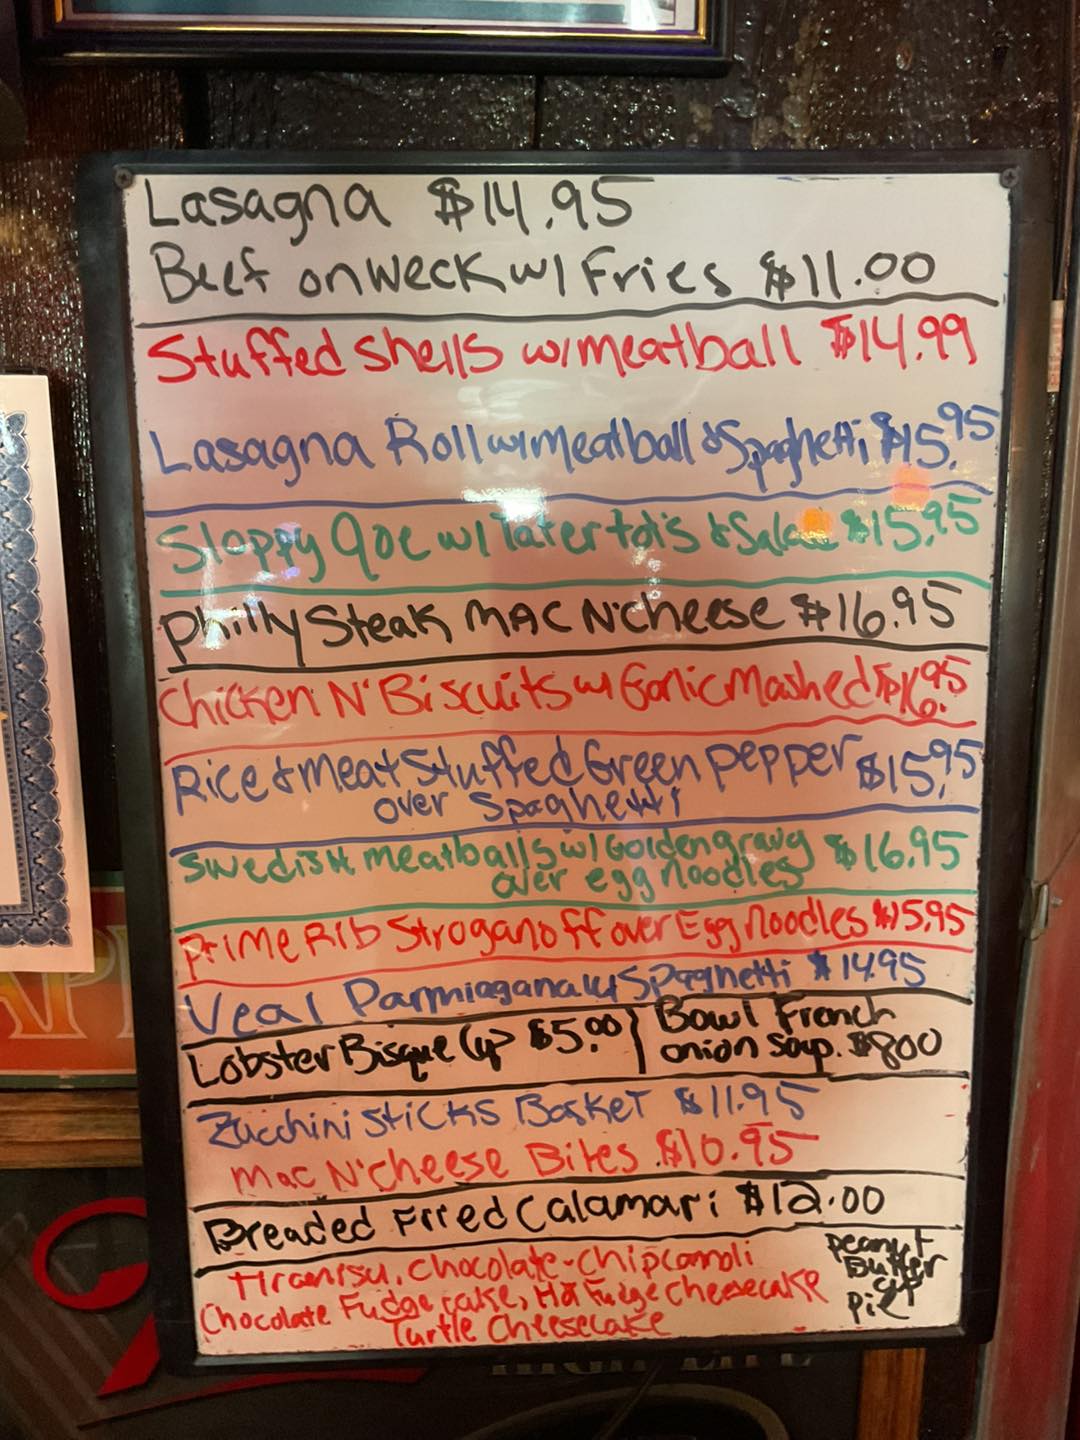 Lasagna $14.95
Beef on weck w/ Fries $11.00
Stuffed shells w/meatball $14.99
Lasagna Roll w/meatball & Spaghetti $15.95
Sloppy Joe w/ Tater tots & Salad $15.95
Philly Steak MAC N'cheese $16.95
Chicken N' Biscuits w/ Garlic Mashed $16.95
Rice & meat Stuffed Green pepper $15.95
over Spaghetti
Swedish meatballs w/ Golden gravy $16.95
over egg noodles
Prime Rib Stroganoff over Egg Noodles $15.95
Veal Parmiagana w/ Spaghetti $14.95
Lobster Bisque Cup $5.00
Bowl French
onion soup. $8.00
Zucchini sticks Basket $11.95
Mac N'cheese Bites $10.95
Breaded Fried Calamari $12.00
Tiramisu, Chocolate-Chip canoli
Chocolate Fudge cake, Hot Fudge Cheesecake
Turtle Cheesecake
peanut
Butter
cup
pie
HIGH LIFE